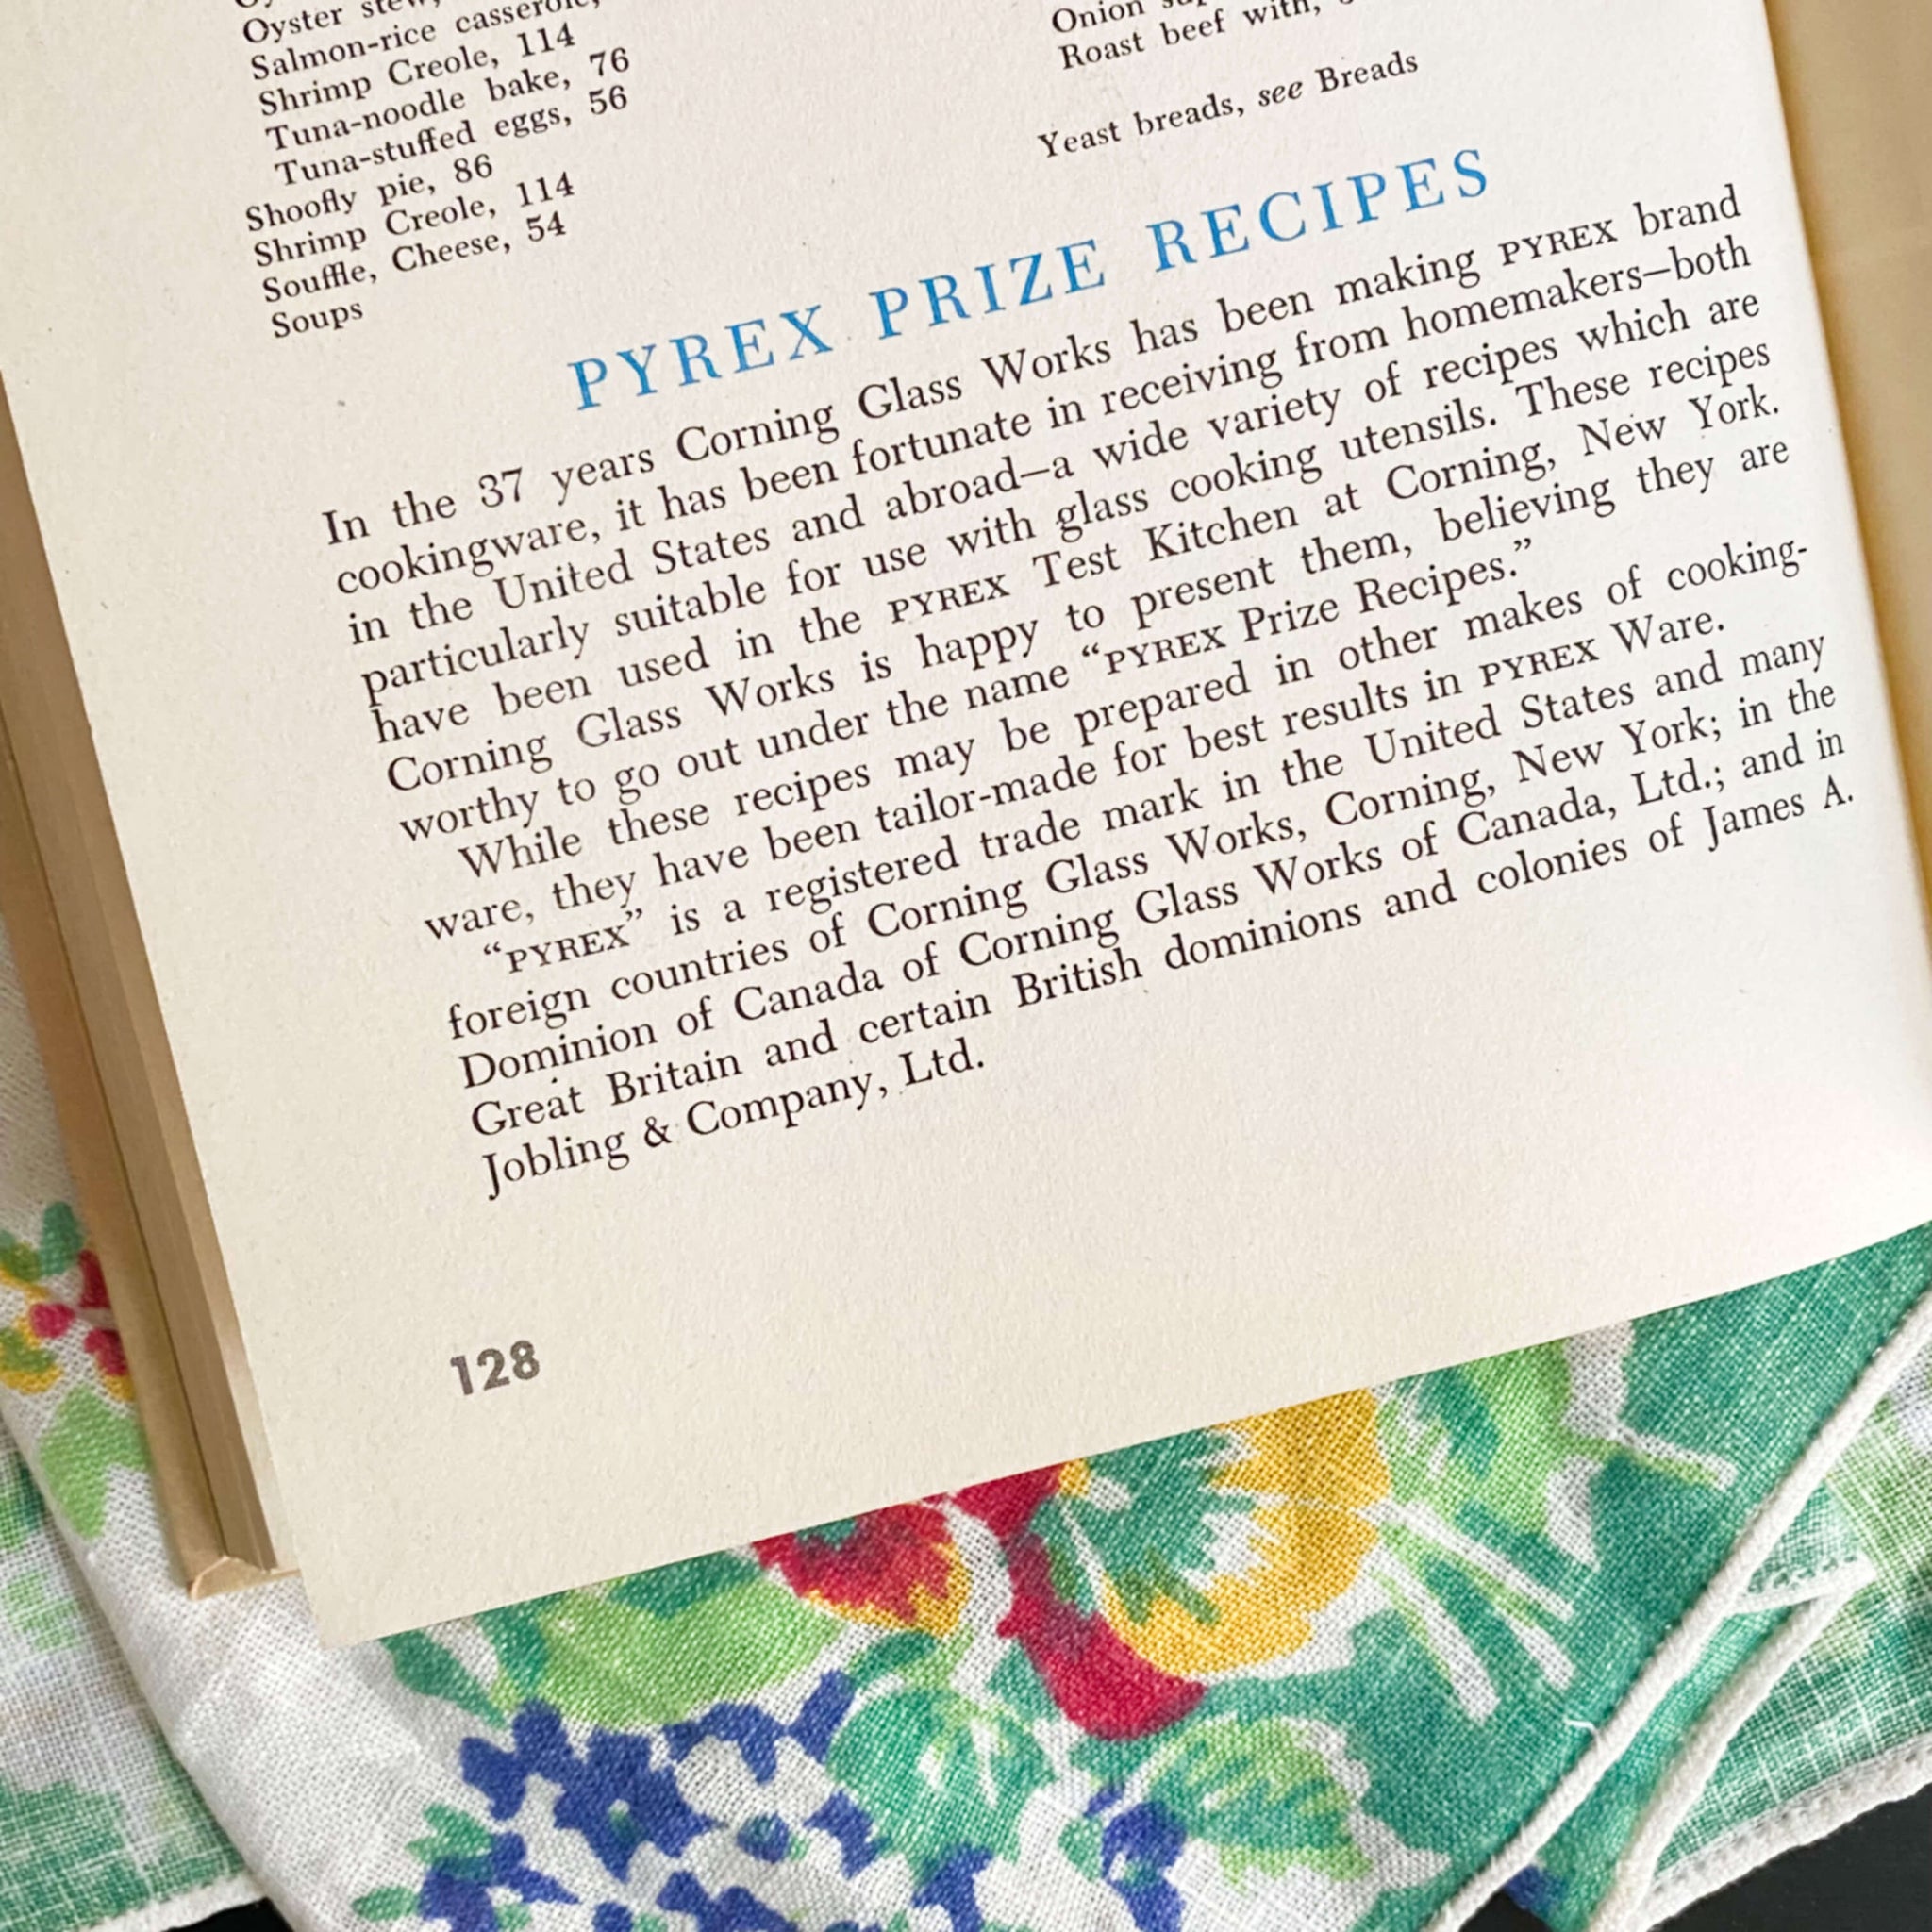 Oyster stew,
Salmon-rice casserole,
Shrimp Creole, 114
Tuna-noodle bake, 76
Tuna-stuffed eggs, 56
Shoofly pie, 86
Shrimp Creole, 114
Souffle, Cheese, 54
Soups
Onion
Roast beef with,
Yeast breads, see Breads
PYREX PRIZE RECIPES
In the 37 years Corning Glass Works has been making PYREX brand
cookingware, it has been fortunate in receiving from homemakers—both
in the United States and abroad—a wide variety of recipes which are
particularly suitable for use with glass cooking utensils. These recipes
have been used in the PYREX Test Kitchen at Corning, New York.
Corning Glass Works is happy to present them, believing they are
worthy to go out under the name “PYREX Prize Recipes.”
While these recipes may be prepared in other makes of cooking-
ware, they have been tailor-made for best results in PYREX Ware.
“PYREX” is a registered trade mark in the United States and many
foreign countries of Corning Glass Works, Corning, New York; in the
Dominion of Canada of Corning Glass Works of Canada, Ltd.; and in
Great Britain and certain British dominions and colonies of James A.
Jobling & Company, Ltd.
128